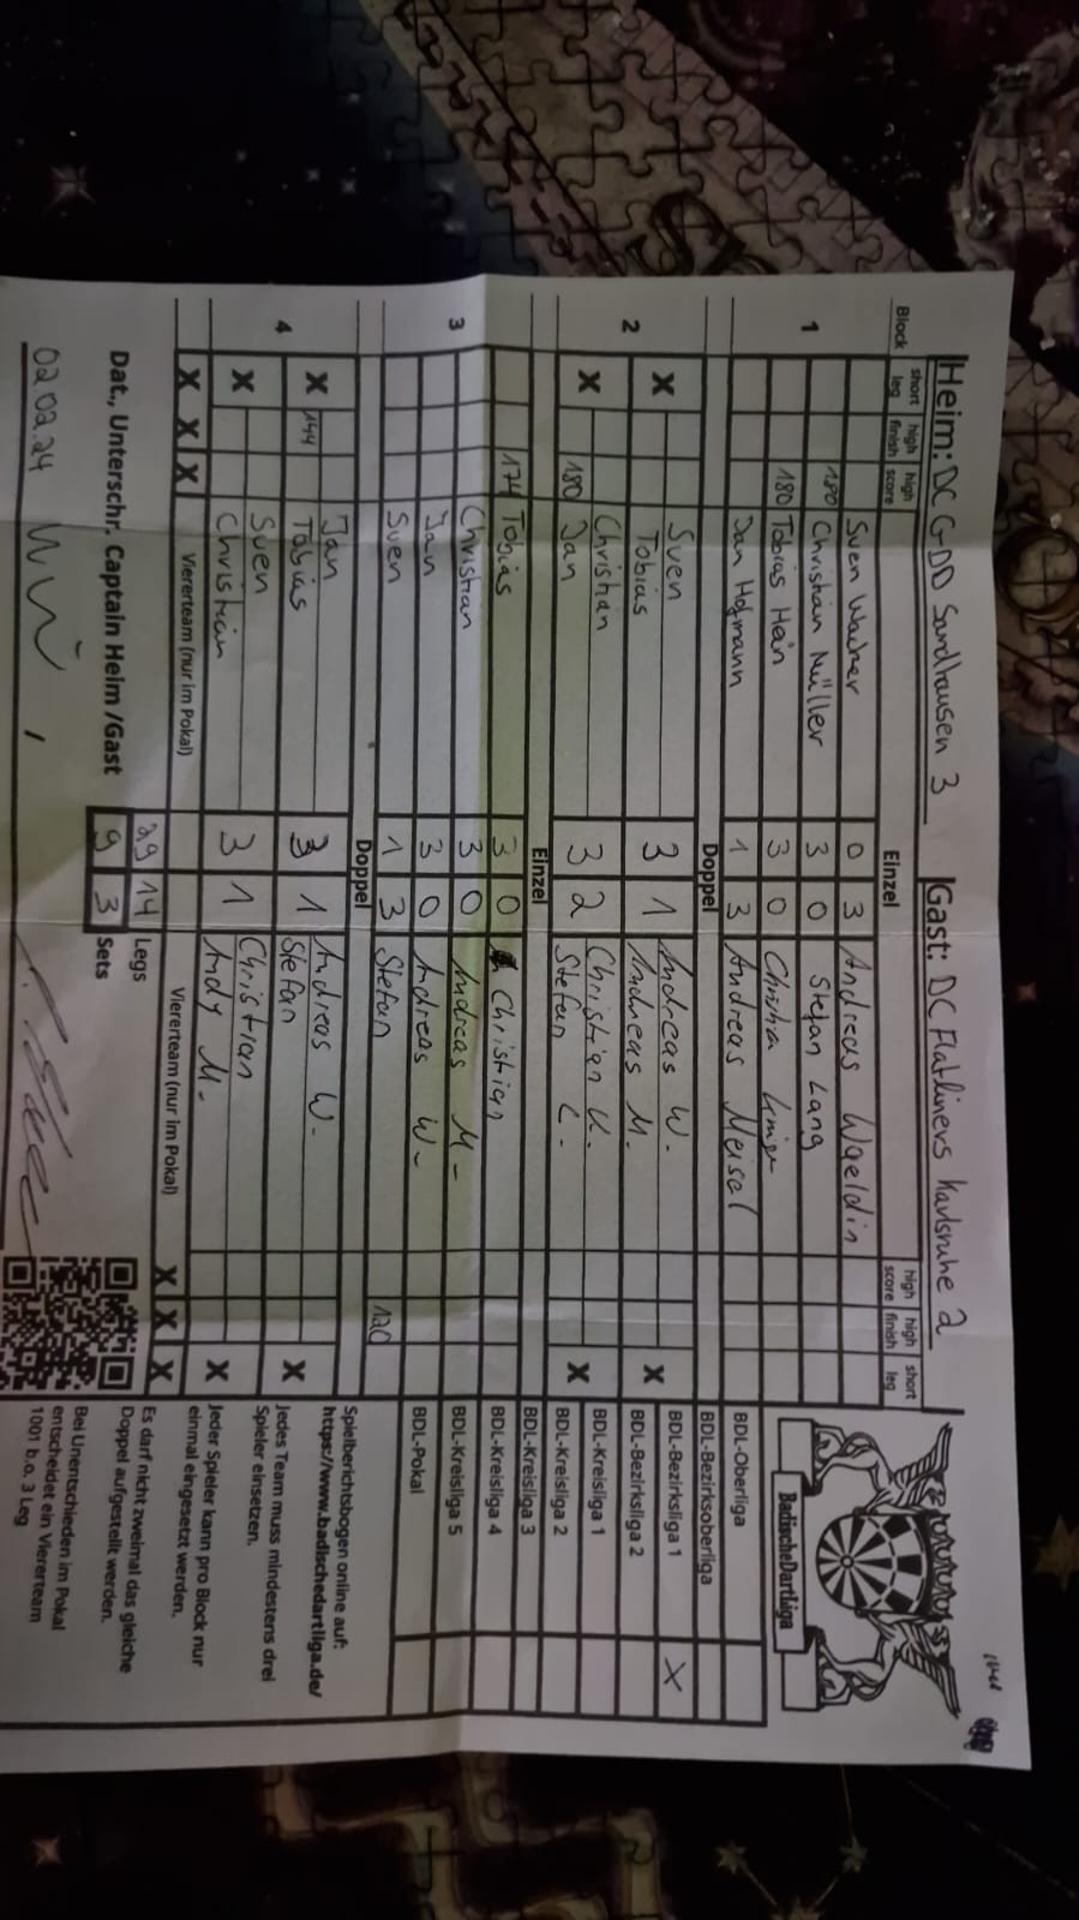 Heim: DC GDD Sandhausen 3 Gast: DC Flatliners Karlsruhe 2
Block short leg high finish high score Einzel high score high finish short leg
1
Sven 0 3 Andreas Waeldin
180 Christian Müller 3 0 Stefan Lang
180 Tobias Hein 3 0 Christian
Jan Hofmann 1 3 Andreas Meisel
Doppel
2
X Sven 3 1 Andreas W. X
Tobias Andreas M.
X Christian 3 2 Christian K. X
180 Jan Stefan L.
Einzel
3
174 Tobias 3 0 Christian
Christian 3 0 Andreas M-
Jan 3 0 Andreas W-
Sven 1 3 Stefan 120
Doppel
4
X Jan 3 1 Andreas W- X
144 Tobias Stefan
X Sven 3 1 Christian X
Christian Andy M-
X X X Viererteam (nur im Pokal) Viererteam (nur im Pokal) X X X
29 14 Legs
Dat., Unterschr. Captain Heim /Gast 9 3 Sets
02.02.24
BadischeDartliga
BDL-Oberliga
BDL-Bezirksoberliga
BDL-Bezirksliga 1 X
BDL-Bezirksliga 2
BDL-Kreisliga 1
BDL-Kreisliga 2
BDL-Kreisliga 3
BDL-Kreisliga 4
BDL-Kreisliga 5
BDL-Pokal
Spielberichtsbogen online auf:
https://www.badischedartliga.de/
Jedes Team muss mindestens drei
Spieler einsetzen.
Jeder Spieler kann pro Block nur
einmal eingesetzt werden.
Es darf nicht zweimal das gleiche
Doppel aufgestellt werden.
Bei Unentschieden im Pokal
entscheidet ein Viererteam
1001 b.o. 3 Leg